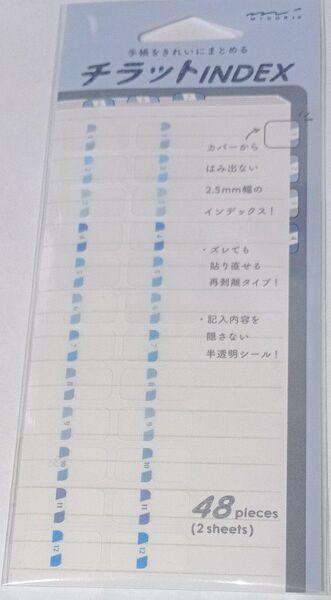 MIDORI
手帳をきれいにまとめる
チラットINDEX
カバーから
はみ出ない
2.5mm幅の
インデックス！
・ズレても
貼り直せる
再剥離タイプ！
・記入内容を
隠さない
半透明シール！
4 4
5 5
6 6
7 7
8 8
9 9
10 10
11 11
12 12
48 pieces
(2 sheets)